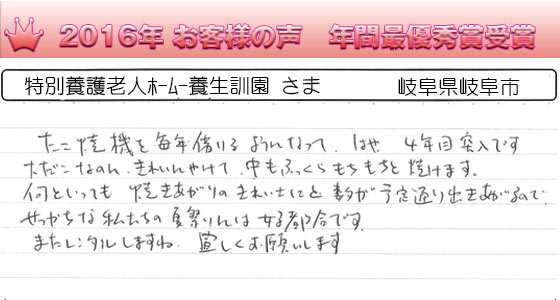 2016年 お客様の声　年間最優秀賞受賞
特別養護老人ﾎｰﾑｰ養生訓園 さま　岐阜県岐阜市
たこ焼機を毎年借りるようになって、はや 4年目突入です
大だこなのに、きれいにやけて、中もふっくらもちもちと焼けます。
何といっても 焼きあがりのきれいさにと 数が予定通り出きあがるので、
せっかちな私たちの夏祭りには好都合です。
またレンタルしますね、宜しくお願いします